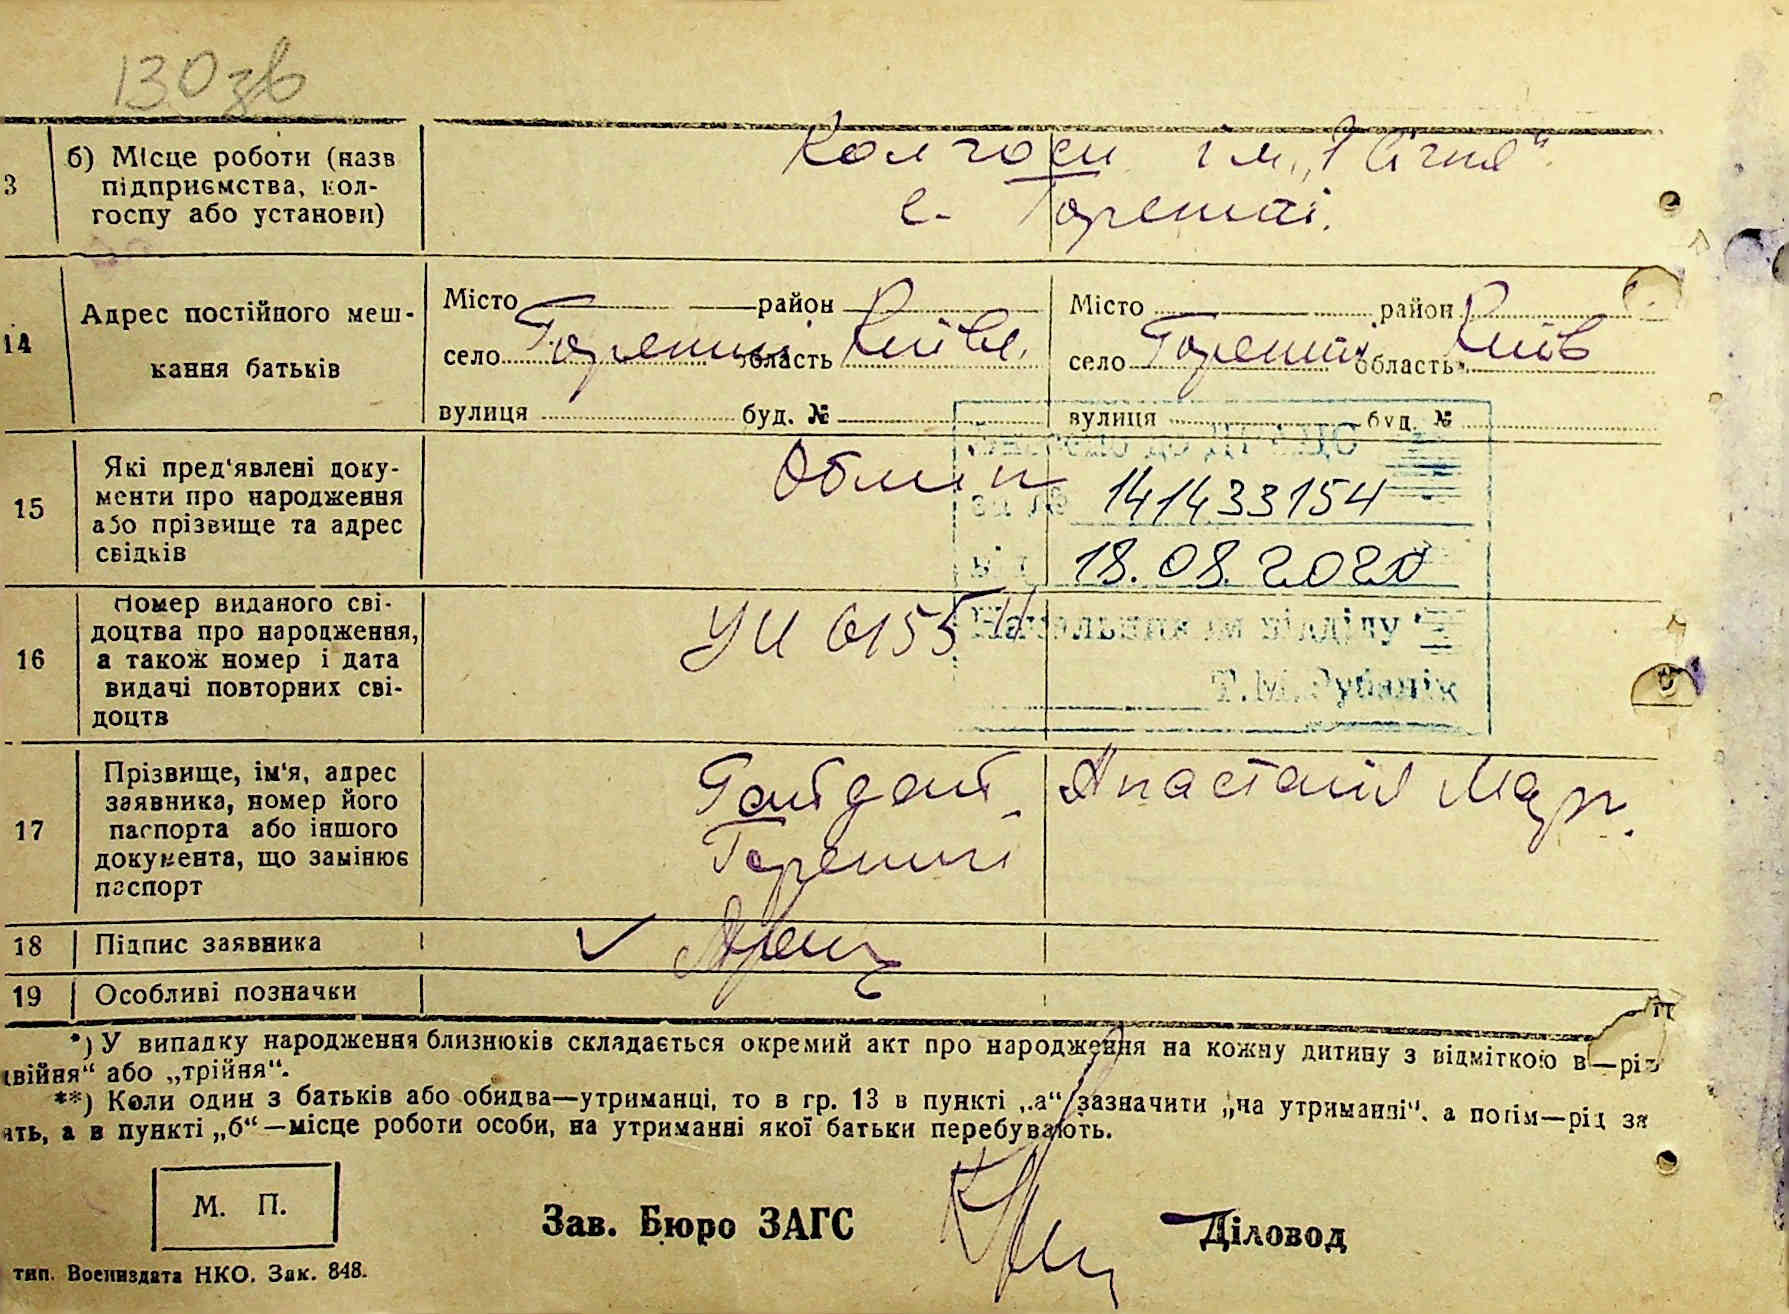 130 зв
3
б) Місце роботи (назв
підприємства, кол-
госпу або установи)
Колгосп ім. „1 Січня“
с. Горенчі.
14
Адрес постійного меш-
кання батьків
Місто район
село область Київ
вулиця буд. №
Місто район
село область Київ
вулиця буд. №
15
Які пред‘явлені доку-
менти про народження
або прізвище та адрес
свідків
№ 141433154
від 18.08.2020
Начальник відділу
Т.М.
16
Номер виданого сві-
доцтва про народження,
а також номер і дата
видачі повторних сві-
доцтв
УИ 6155
17
Прізвище, ім‘я, адрес
заявника, номер його
паспорта або іншого
документа, що замінює
паспорт
Гайдай Анастасія Мар.
18
Підпис заявника
19
Особливі позначки
*) У випадку народження близнюків складається окремий акт про народження на кожну дитину з відміткою в—рі
двійня“ або „трійня“.
**) Коли один з батьків або обидва—утриманці, то в гр. 13 в пункті „а“ зазначити „на утриманні“, а потім—рід за
ять, а в пункті „б“—місце роботи особи, на утриманні якої батьки перебувають.
М. П.
Зав. Бюро ЗАГС
Діловод
тип. Воениздата НКО. Зак. 848.